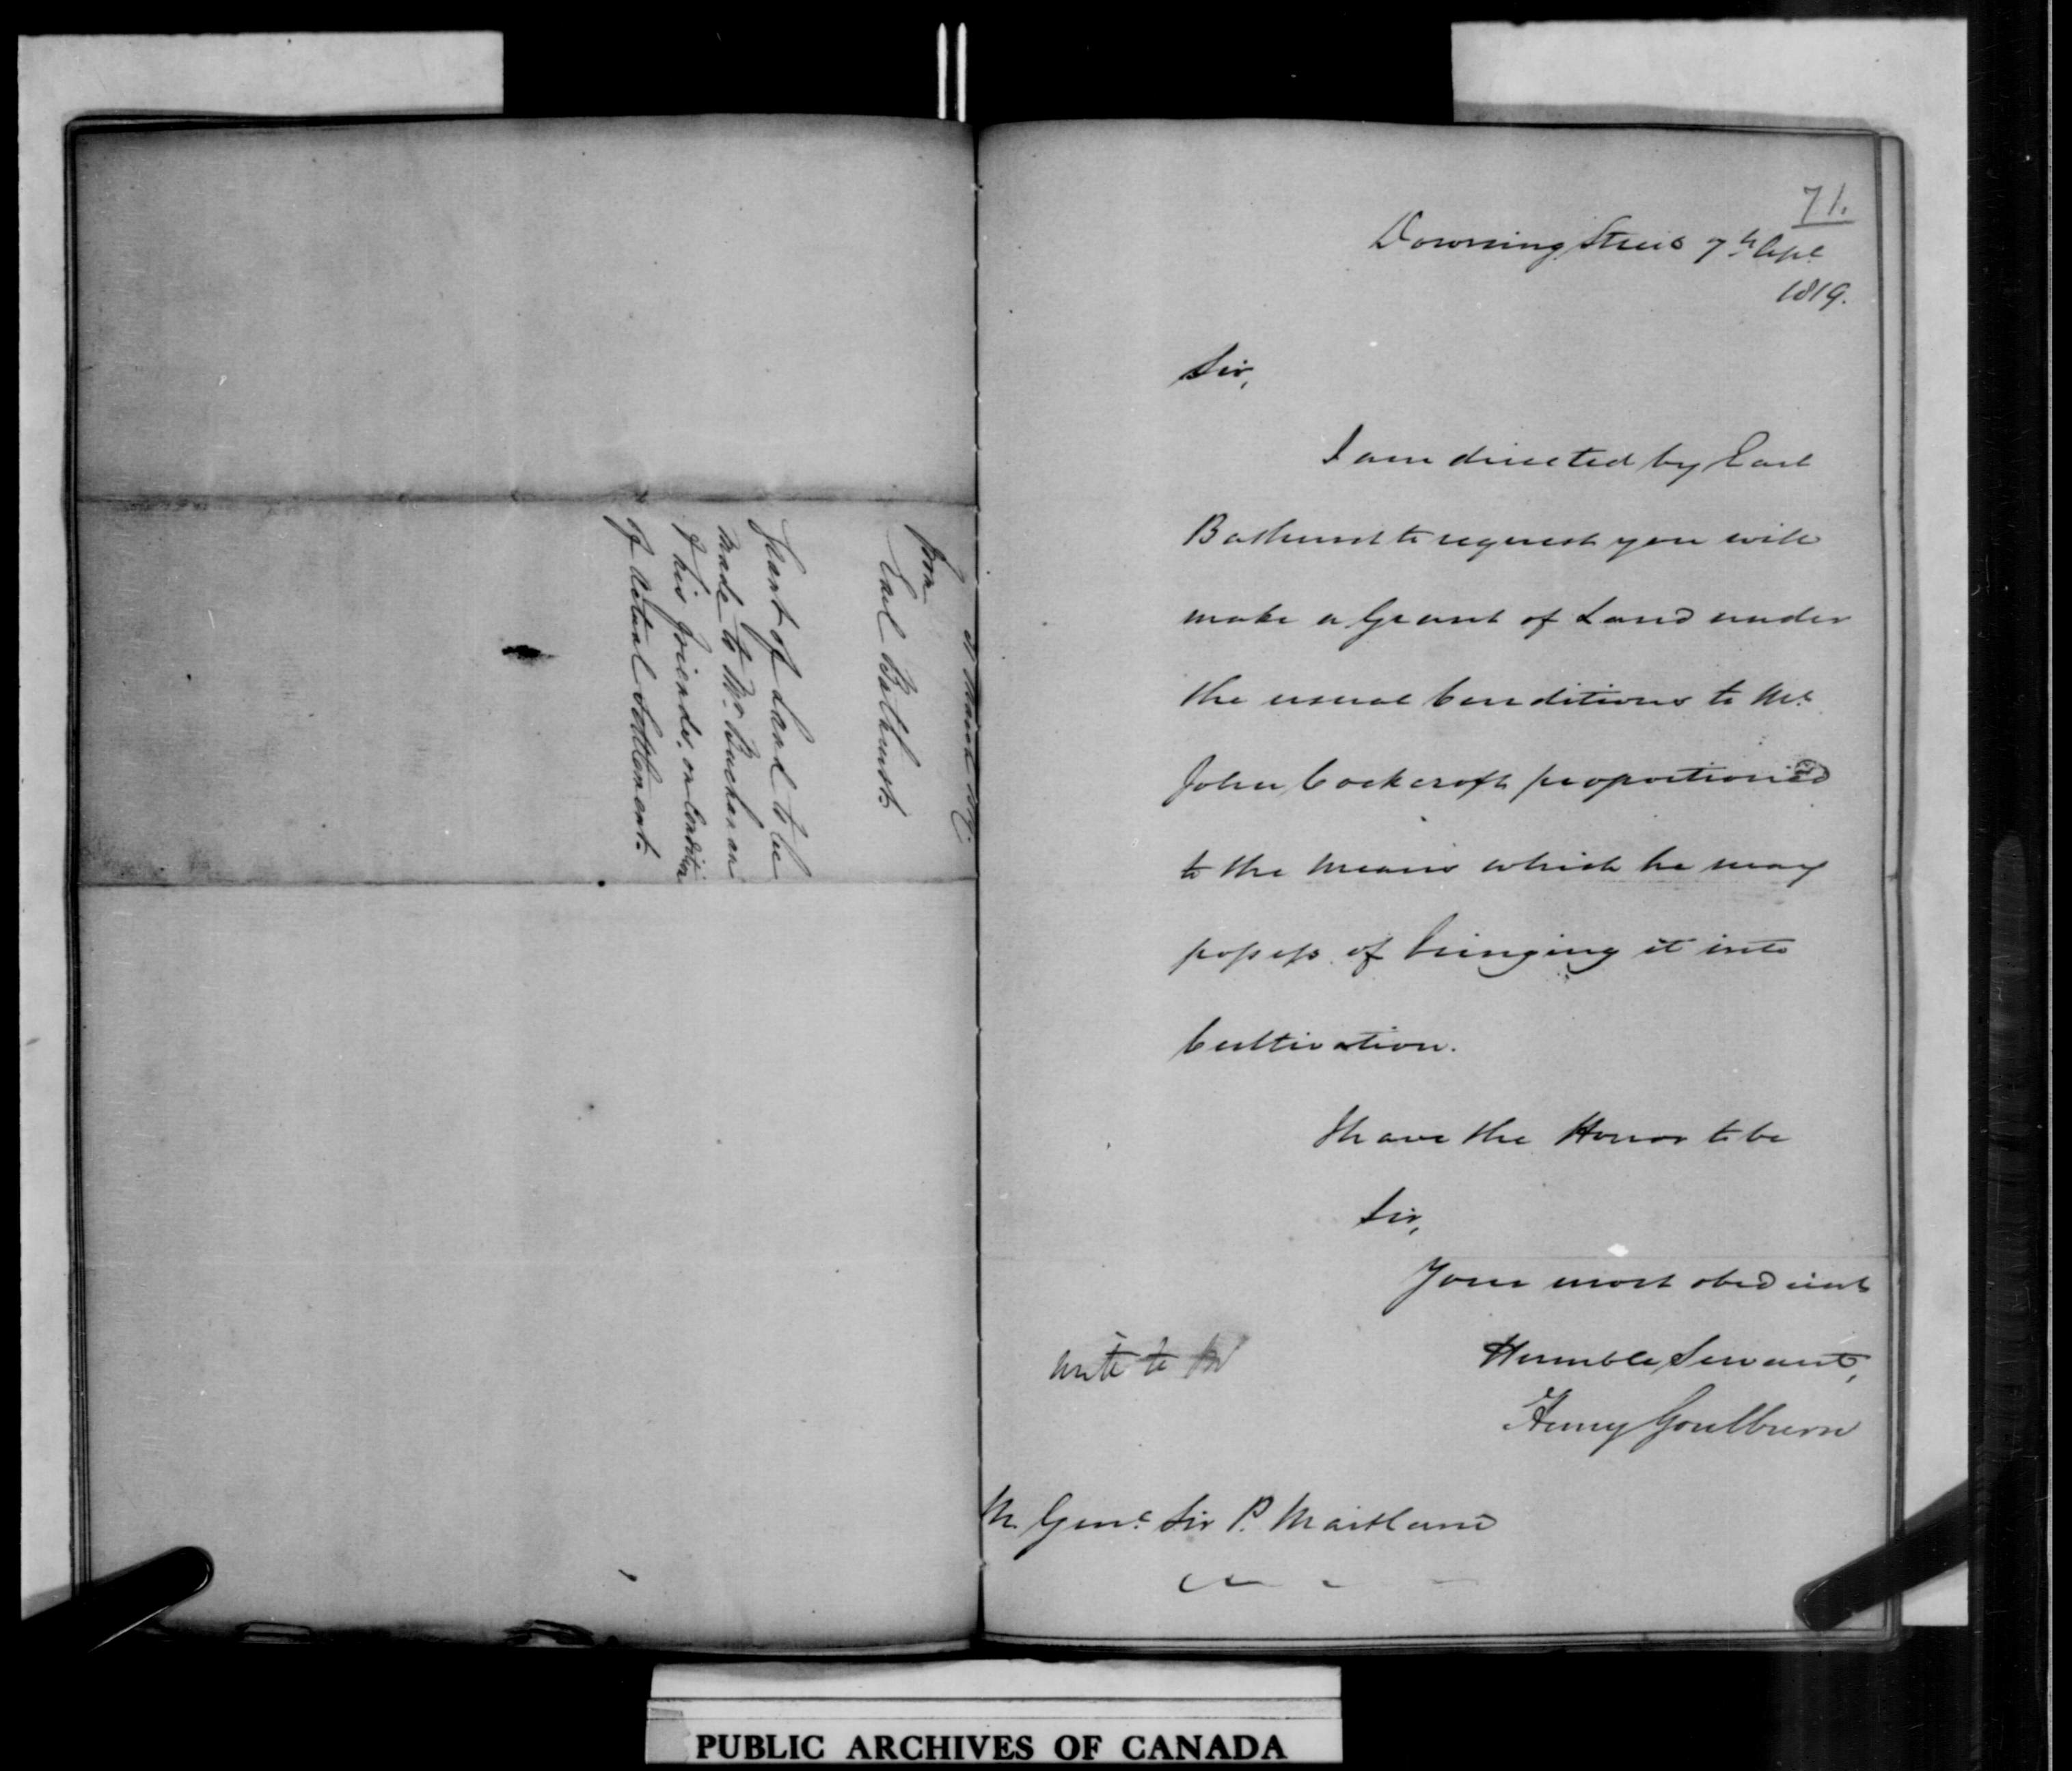 March
from
Earl Bathurst
Grant of Land to be
made to Mr. Buchanan
& his friends, on Condition
of Actual Settlement.
71.
Downing Street 7th Apl
1819.
Sir,
I am directed by Earl
Bathurst to request you will
make a Grant of Land under
the usual Conditions to Mr.
John Cockcroft proportioned
to the Means which he may
possess of bringing it into
Cultivation.
I have the Honor to be
Sir,
Your most obedient
Humble Servant,
Henry Goulburn
write to
M. Genl. Sir P. Maitland
PUBLIC ARCHIVES OF CANADA